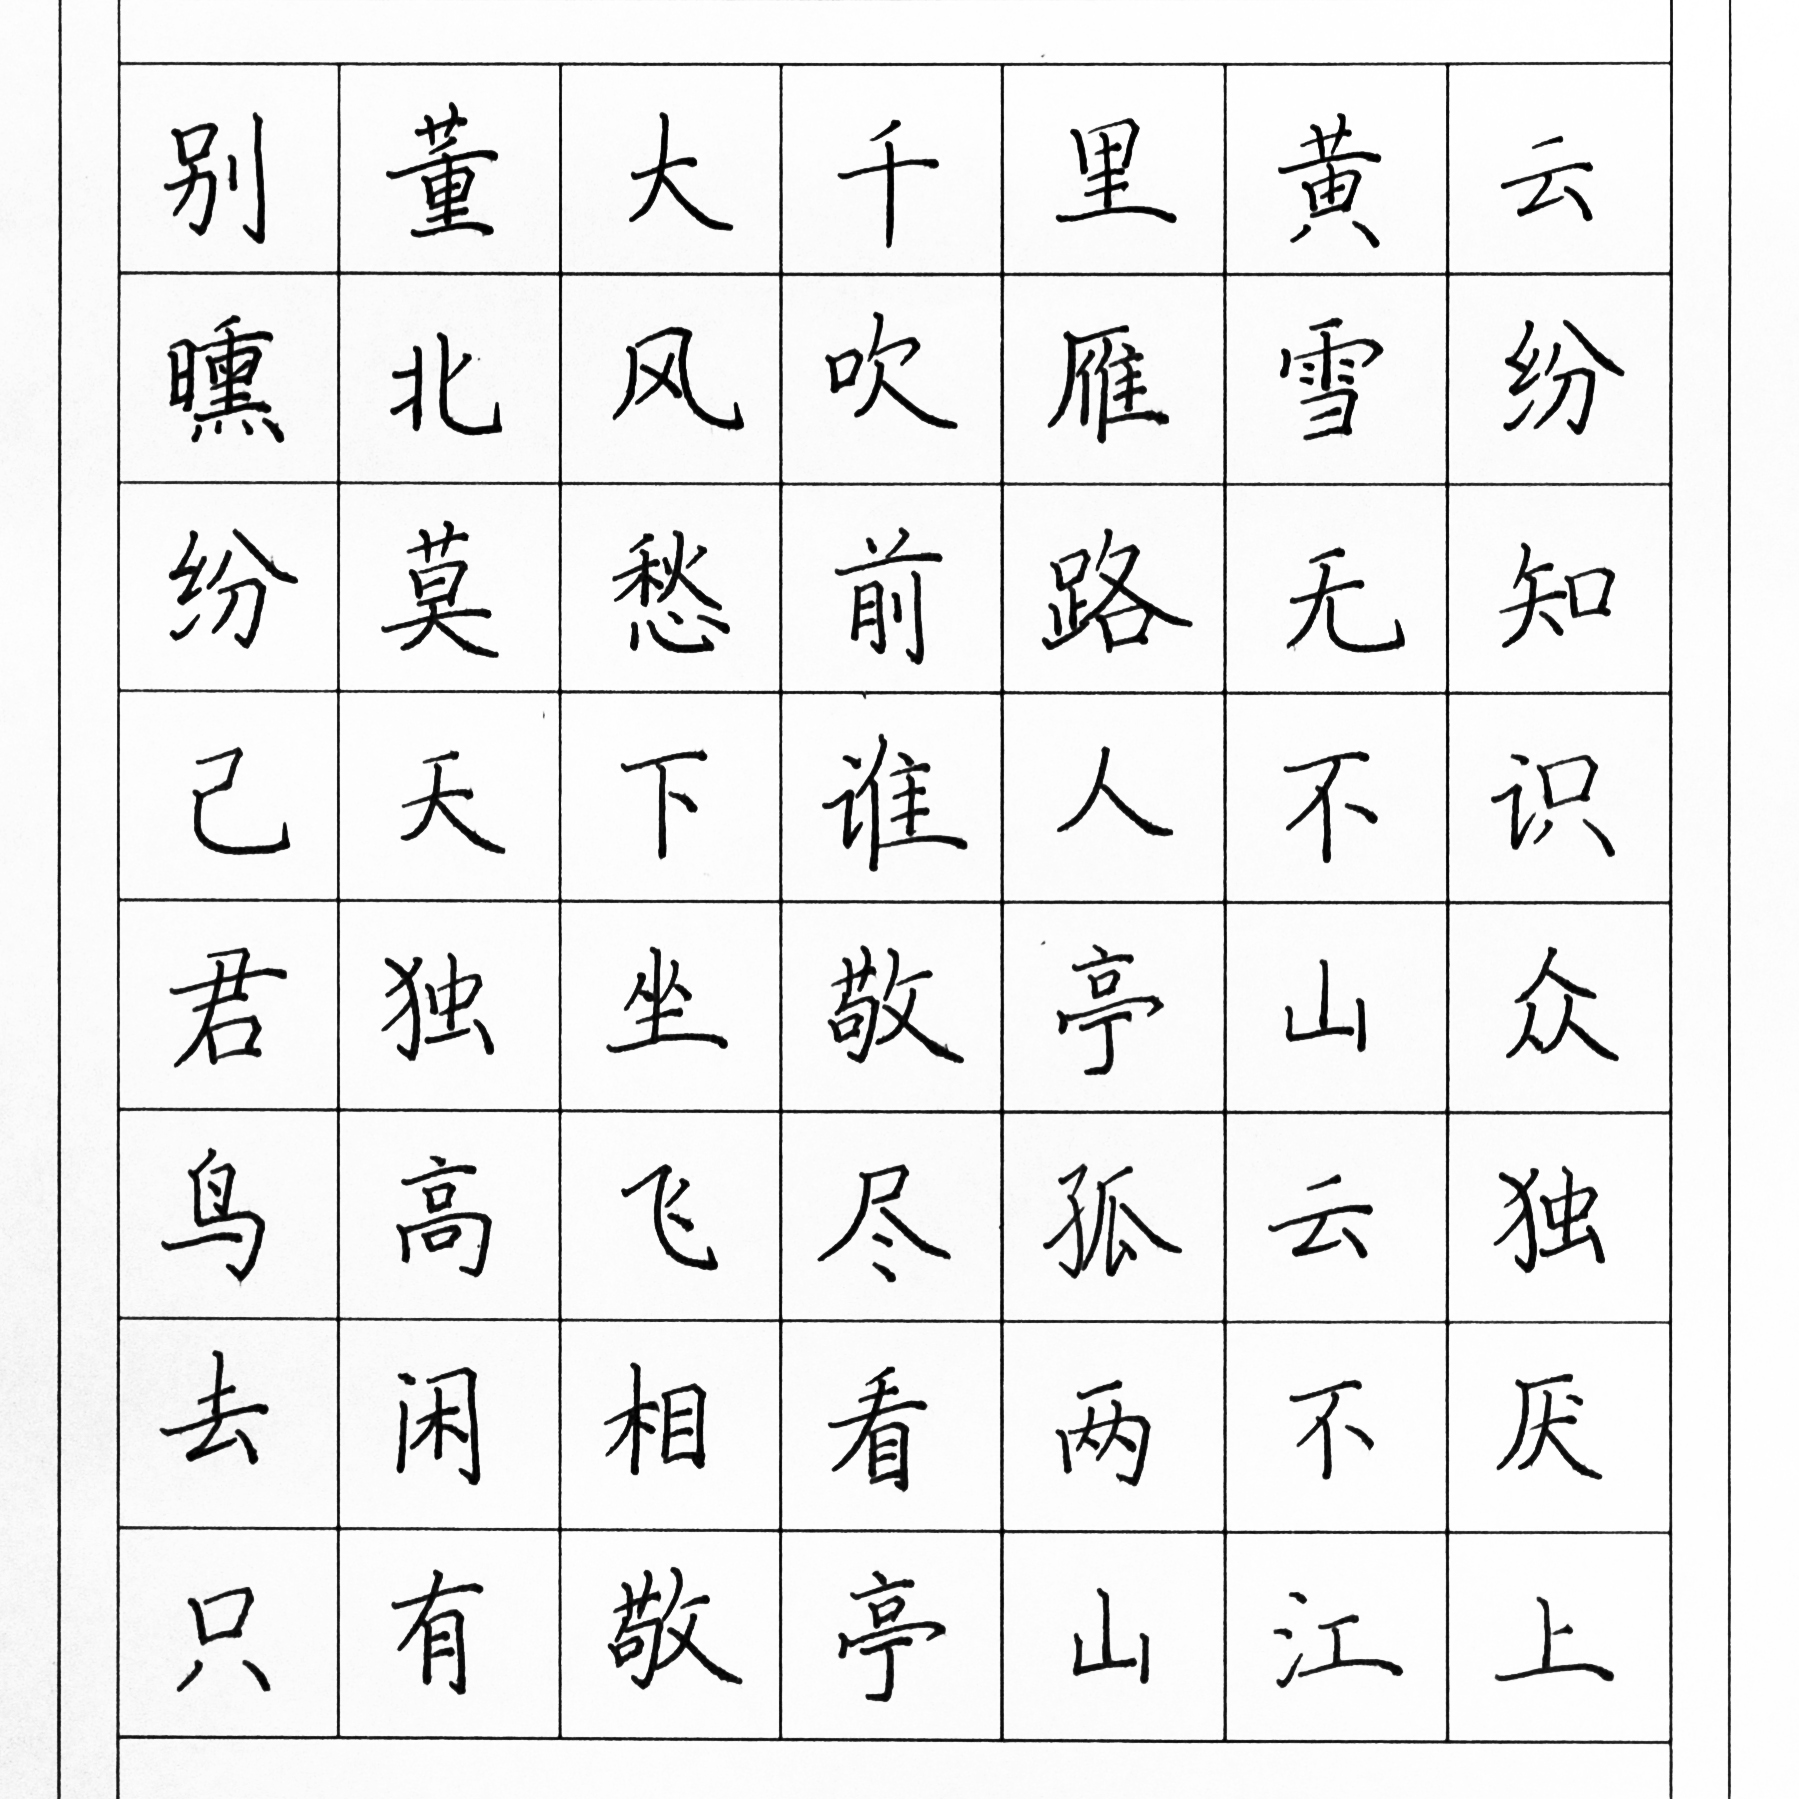 别董大千里黄云
曛北风吹雁雪纷
纷莫愁前路无知
己天下谁人不识
君独坐敬亭山众
鸟高飞尽孤云独
去闲相看两不厌
只有敬亭山江上